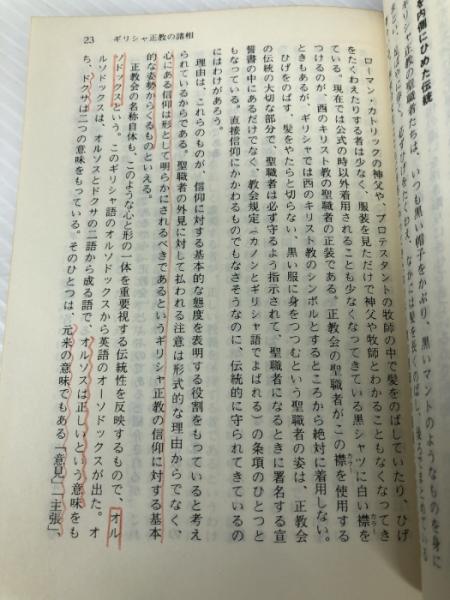 23　ギリシャ正教の諸相
を内側にひめた伝統
ギリシャ正教の聖職者たちは、いつも黒い帽子をかぶり、黒いマントのようなものを身に
ローマン・カトリックの神父や、プロテスタントの牧師の中で髪をのばしていたり、ひげ
をたくわえたりする者は少なく、服装を見ただけで神父や牧師とわかることも少なくなってき
ている。現在では公式の時以外着用されることも少なくなってきている黒シャツに白い襟を
つけるのが、西のキリスト教の聖職者の正装である。正教会の聖職者がこの襟を使用する
ときもあるが、ギリシャでは西のキリスト教のシンボルとするところから絶対に着用しない。
ひげをのばす、髪をやたらと切らない、黒い服に身をつつむという聖職者の姿は、正教会
の伝統の大切な部分で、聖職者は必ず守るよう指示されて、聖職者になるときに署名する宣
誓書の中にあるだけでなく、教会規定（カノンとギリシャ語でよばれる）の条項のひとつと
もなっている。直接信仰にかかわるものでもなさそうなのに、伝統的に守られてきているの
にはわけがあろう。
理由は、これらのものが、信仰に対する基本的な態度を表明する役割をもっていると考え
られているからである。聖職者の外見に対して払われる注意は形式的な理由からでなく、
心にある信仰は形として明らかにされるべきであるというギリシャ正教の信仰に対する基本
的な姿勢からくるものといえる。
正教会の名称自体も、このような心と形の一体を重要視する伝統性を反映するもので、オル
ソドックスという。このギリシャ語のオルソドックスから英語のオーソドックスが出た。オ
ルソドックスは、オルソスとドクサの二語から成る語で、オルソスは正しいという意味をも
ち、ドクサは二つの意味をもっている。そのひとつは、元来の意味でもある「意見」「主張」